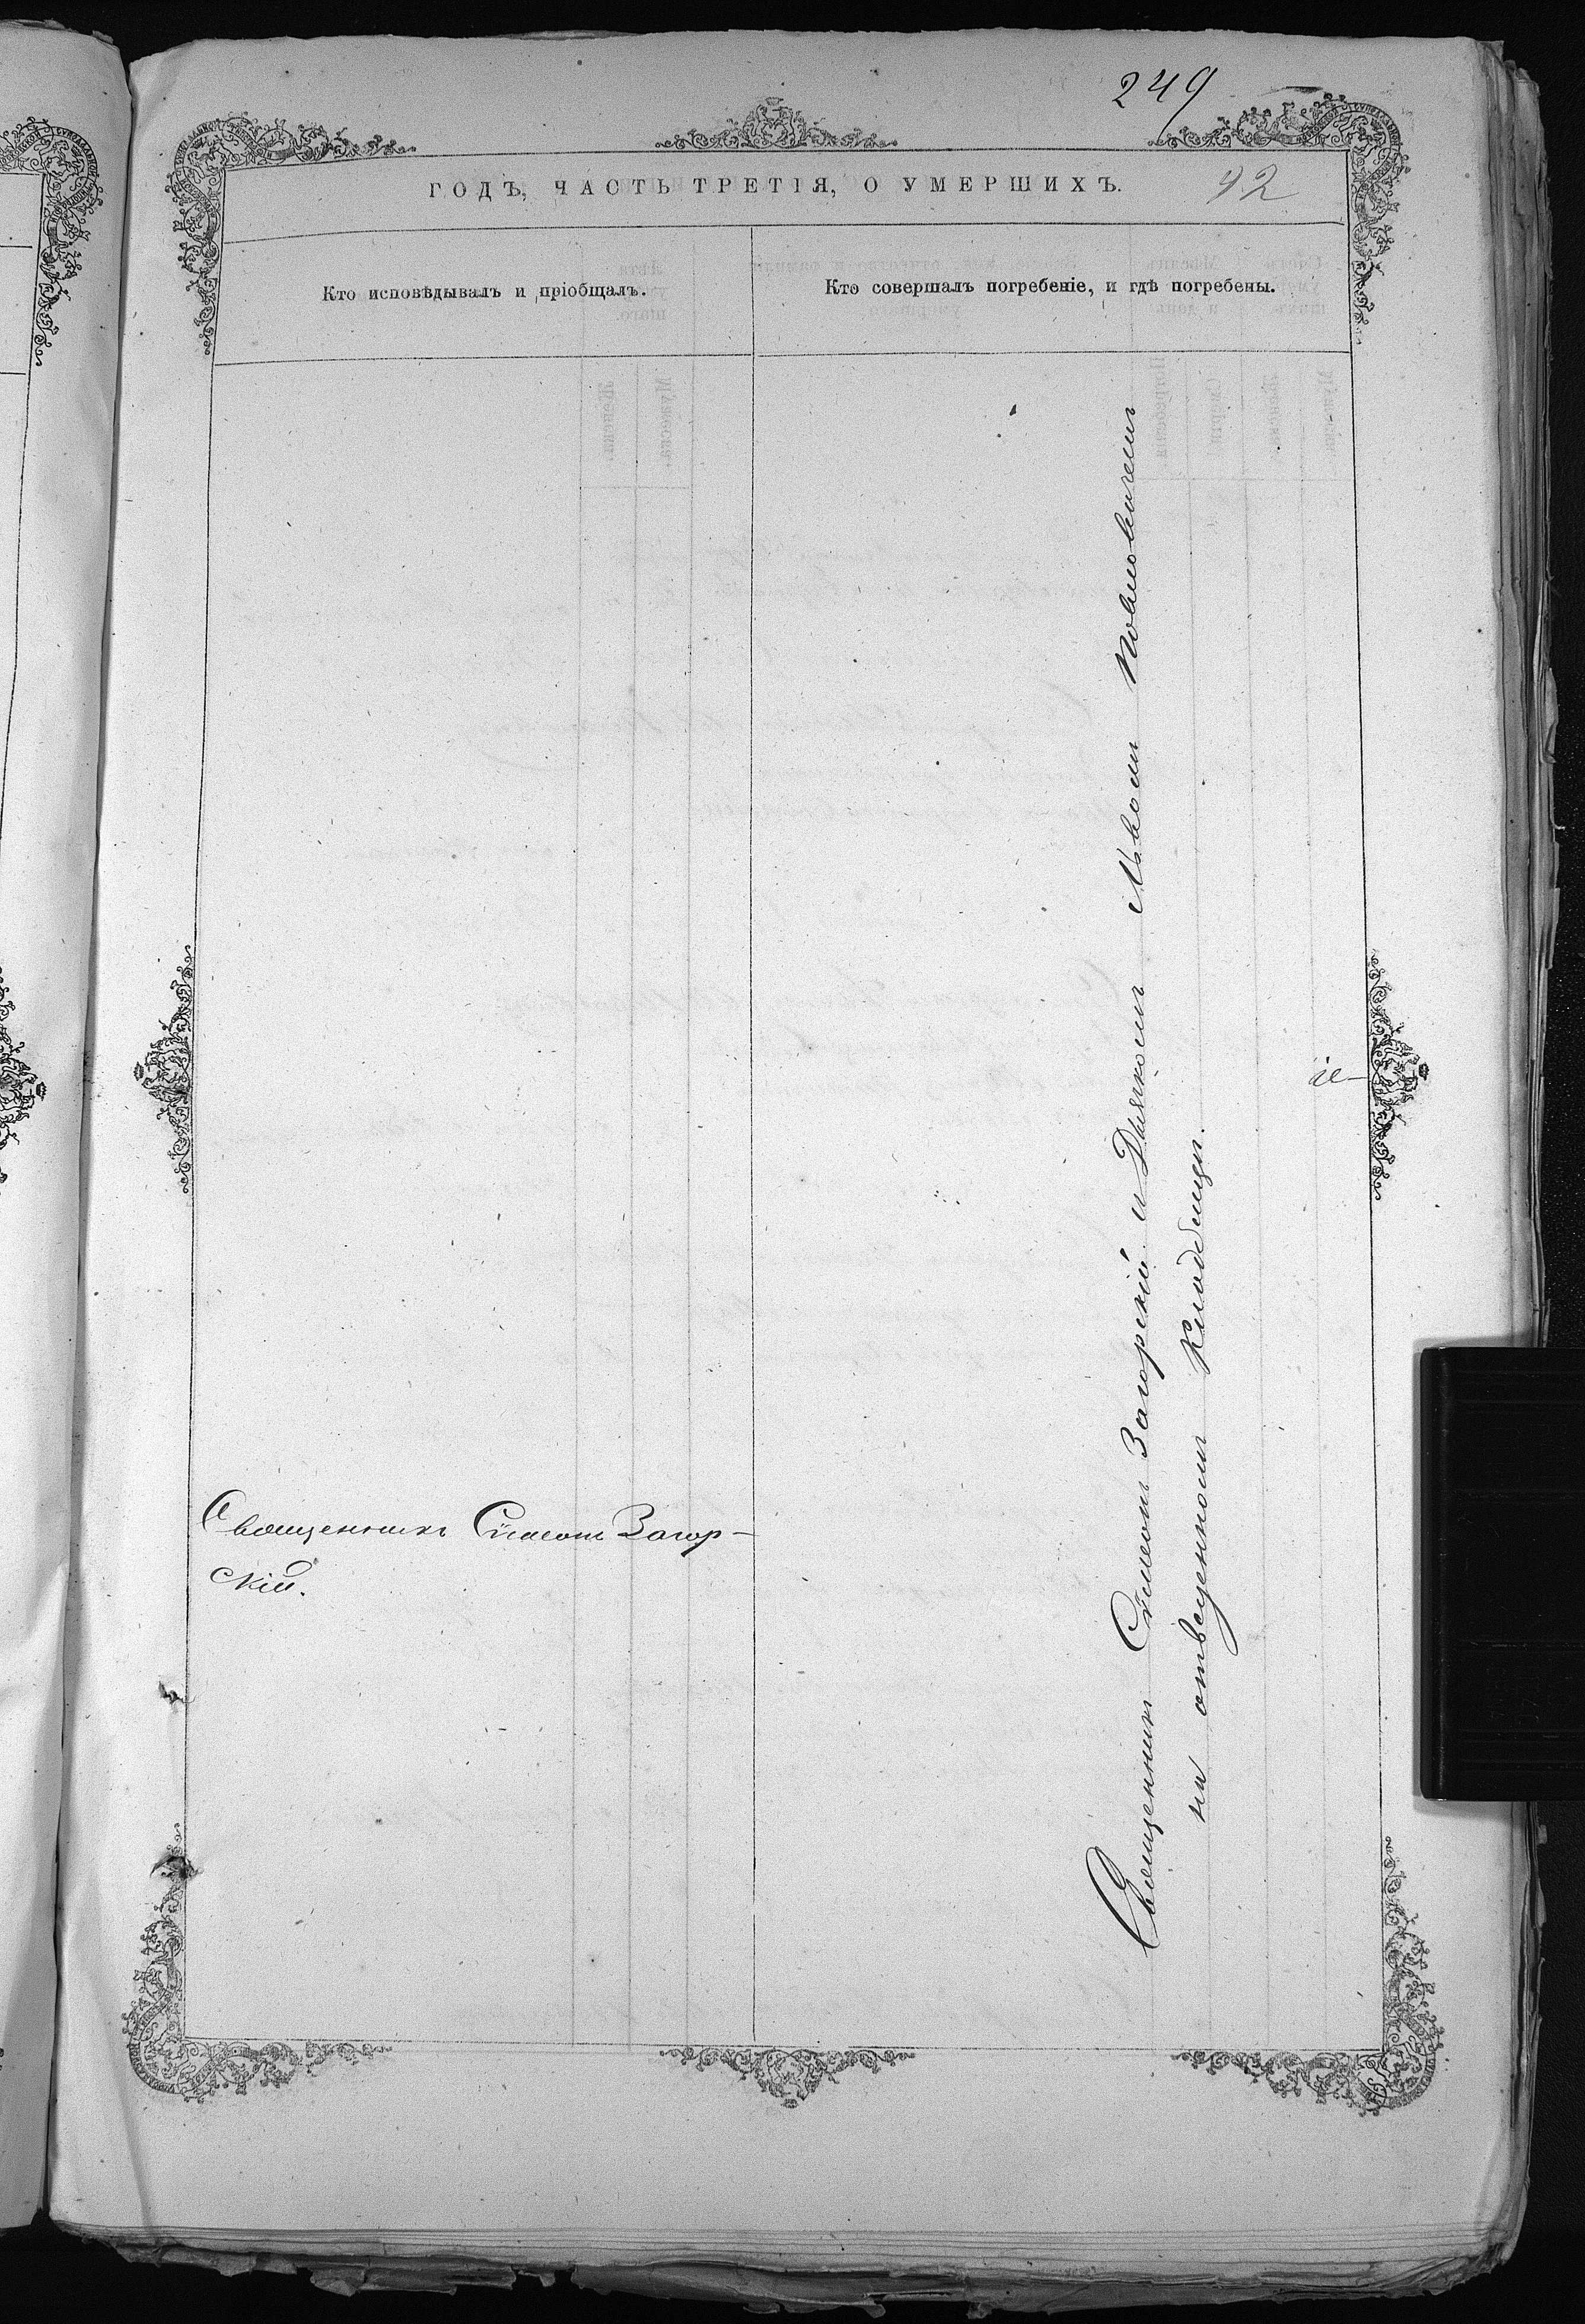 249
ГОДЪ, ЧАСТЬ ТРЕТІЯ, О УМЕРШИХЪ.
92
Кто исповѣдывалъ и пріобщалъ.
Кто совершалъ погребеніе, и гдѣ погребены.
Священникъ Сѵмеонъ Загор-
скій.
Священникъ Сѵмеонъ Загорскій и Дьякомъ
на отведенномъ Кладбищѣ.